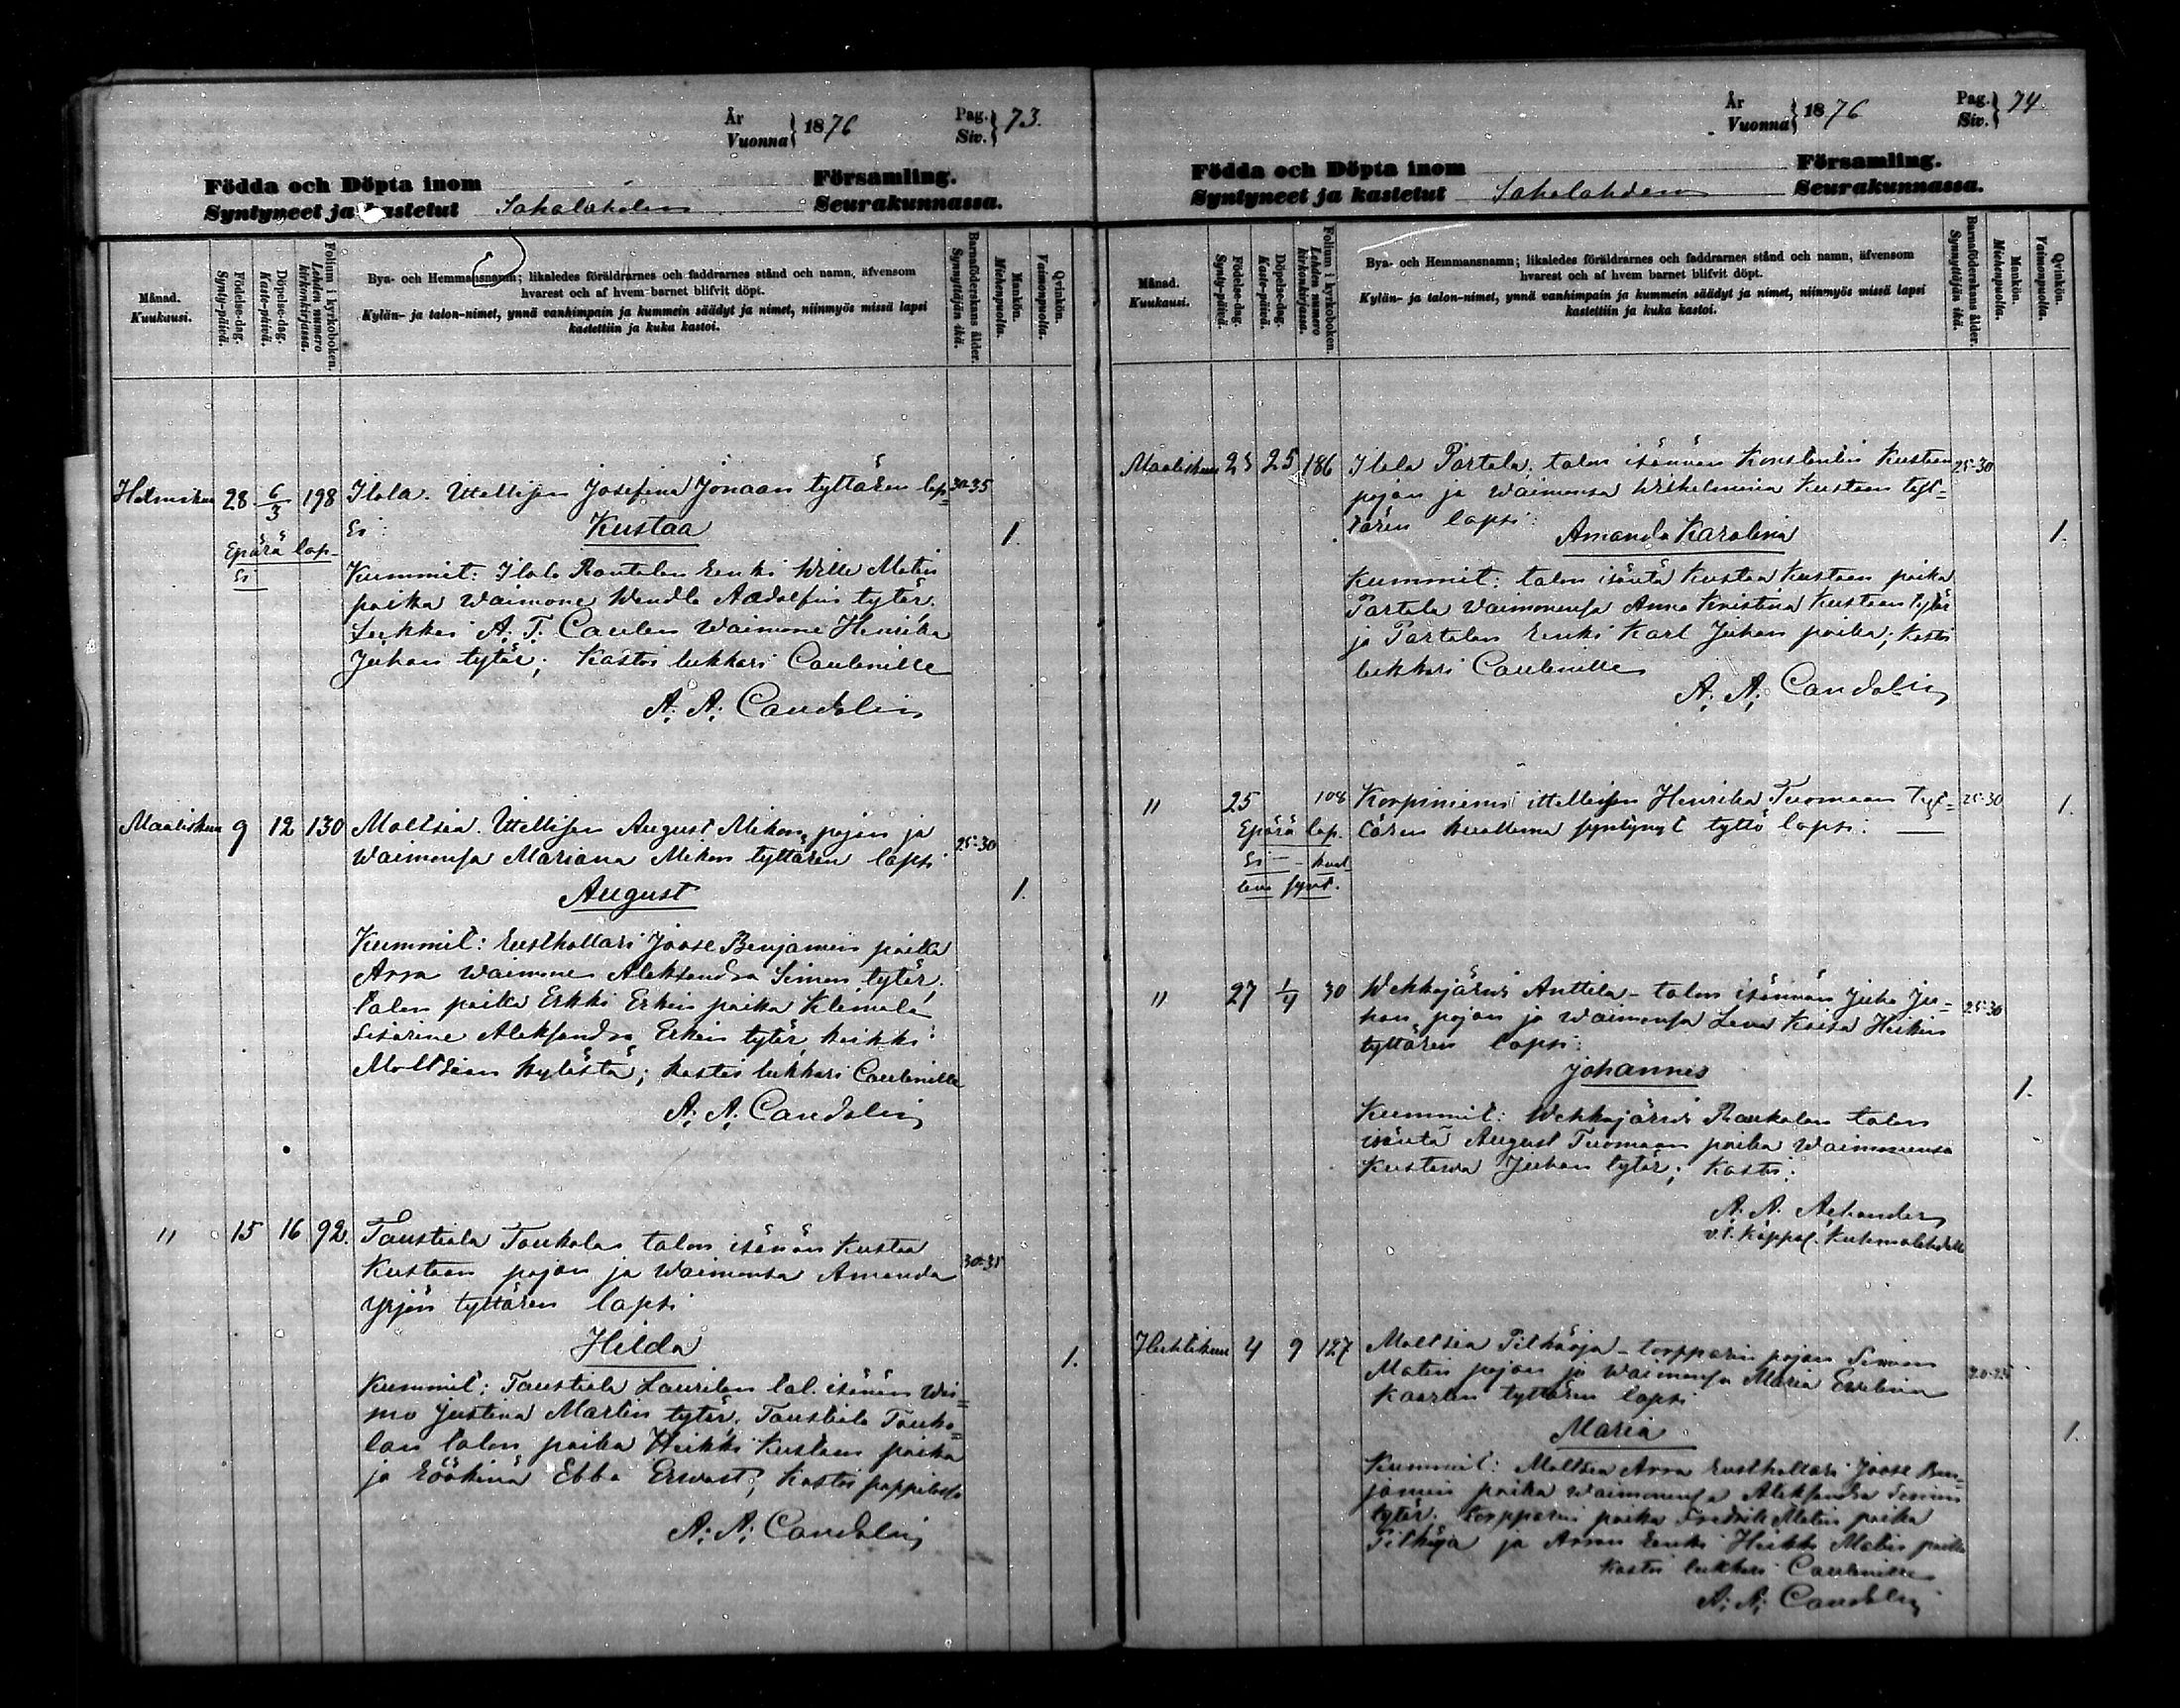 År
Vuonna } 1876
Pag.
Siv. } 73.
Födda och Döpta inom Församling.
Syntyneet ja kastetut Sahalahden Seurakunnassa.
Månad.
Kuukausi.
Födelse-dag.
Synty-päivä.
Döpelse-dag.
Kaste-päivä.
Folium i kyrkoboken.
Lehden numero
kirkonkirjassa.
Bya- och Hemmansnamn; likaledes föräldrarnes och faddrarnes stånd och namn, äfvensom
hvarest och af hvem barnet blifvit döpt.
Kylän- ja talon-nimet, ynnä vanhimpain ja kummein säädyt ja nimet, niinmyös missä lapsi
kastettiin ja kuka kastoi.
Barnaföderskans ålder.
Synnyttäjän ikä.
Mankön.
Miehenpuolta.
Qvinkön.
Vaimonpuolta.
Helmikuu 28 6/3 198 Ilola. Itellisen Josefina Jonaan tyttären lap= 30-35
si: Kustaa 1.
Epärä lap-
si
Kummit: Ilola Rantalan renki Wille Matin
poika waimone Wendla Aadolfin tytär.
Lukkari A. T. Caulen waimone Henrika
Juhan tytär; Kastoi lukkari Caulenille
A. A. Candolin
Maaliskuu 9 12 130 Moltsia. Itellisen August Mikon pojan ja
waimonsa Mariana Mikon tyttären lapsi 25-30
August 1.
Kummit: Rusthollari Joose Benjamin poika
Arra waimone Aleksandra Simon tytär,
talon poika Erkki Erkin poika Klemola
sisarine Aleksandra Erkin tytär kaikki
Moltsian kylästä; kastoi lukkari Caulenille
A. A. Candolin
" 15 16 92. Taustiala Toukolan talon isänän Kustaa
Kustaan pojan ja waimonsa Amanda 30-35
Yrjön tyttären lapsi
Hilda 1.
Kummit: Taustiala Laurilan tal. isänän wai=
mo Justina Martin tytär, Taustiala Touko=
lan talon poika Heikki Kustaan poika
ja röökinä Ebba Erwast; Kastoi pappilassa
A. A. Candolin
År
Vuonna } 1876
Pag.
Siv. } 74.
Födda och Döpta inom Församling.
Syntyneet ja kastetut Sahalahden Seurakunnassa.
Månad.
Kuukausi.
Födelse-dag.
Synty-päivä.
Döpelse-dag.
Kaste-päivä.
Folium i kyrkoboken.
Lehden numero
kirkonkirjassa.
Bya- och Hemmansnamn; likaledes föräldrarnes och faddrarnes stånd och namn, äfvensom
hvarest och af hvem barnet blifvit döpt.
Kylän- ja talon-nimet, ynnä vanhimpain ja kummein säädyt ja nimet, niinmyös missä lapsi
kastettiin ja kuka kastoi.
Barnaföderskans ålder.
Synnyttäjän ikä.
Mankön.
Miehenpuolta.
Qvinkön.
Vaimonpuolta.
Maaliskuu 23 25 186 Ilola Partala talon isännän Konstantin Kustaan 25-30
pojan ja waimonsa Wilhelmina Kustaan tyt=
tären lapsi:
Amanda Karolina 1.
Kummit: talon isäntä Kustaa Kustaan poika
Partala waimonensa Anna Kristina Kustaan tytär
ja Partalan renki Karl Juhan poika; Kastoi
lukkari Caulenille
A. A. Candolin
" 25 108 Korpiniemi itellisen Henrika Tuomaan tyt= 25-30
tären kuollunna syntynyt tyttö lapsi. 1.
Epärä lap.
si - kuol
lena synt.
" 27 1/4 30 Wehkajärvi Anttila-talon isännän Juha Ju= 25-30
han pojan ja waimonsa Leena Kaisa Heikin
tyttären lapsi:
Johannes 1.
Kummit: Wehkajärvi Raukolan talon
isäntä August Tuomaan poika waimonensa
Kustawa Juhan tytär; Kastoi:
A. A. Achander
v.t. Kappal. Kuhmalahdella
Huhtikuu 4 9 127 Moltsia Pitkäoja-torpparin pojan Simon
Matin pojan ja waimonsa Maria Ewelina 20-25
Kaarlen tyttären lapsi
Maria 1.
Kummit: Moltsia Arra rusthollari Joose Ben=
jamin poika waimonensa Aleksandra Simon
tytär. torpparin poika Fredrik Matin poika
Pitkäoja ja Arran renki Heikki Matin poika
Kastoi lukkari Caulenille
A. A. Candolin